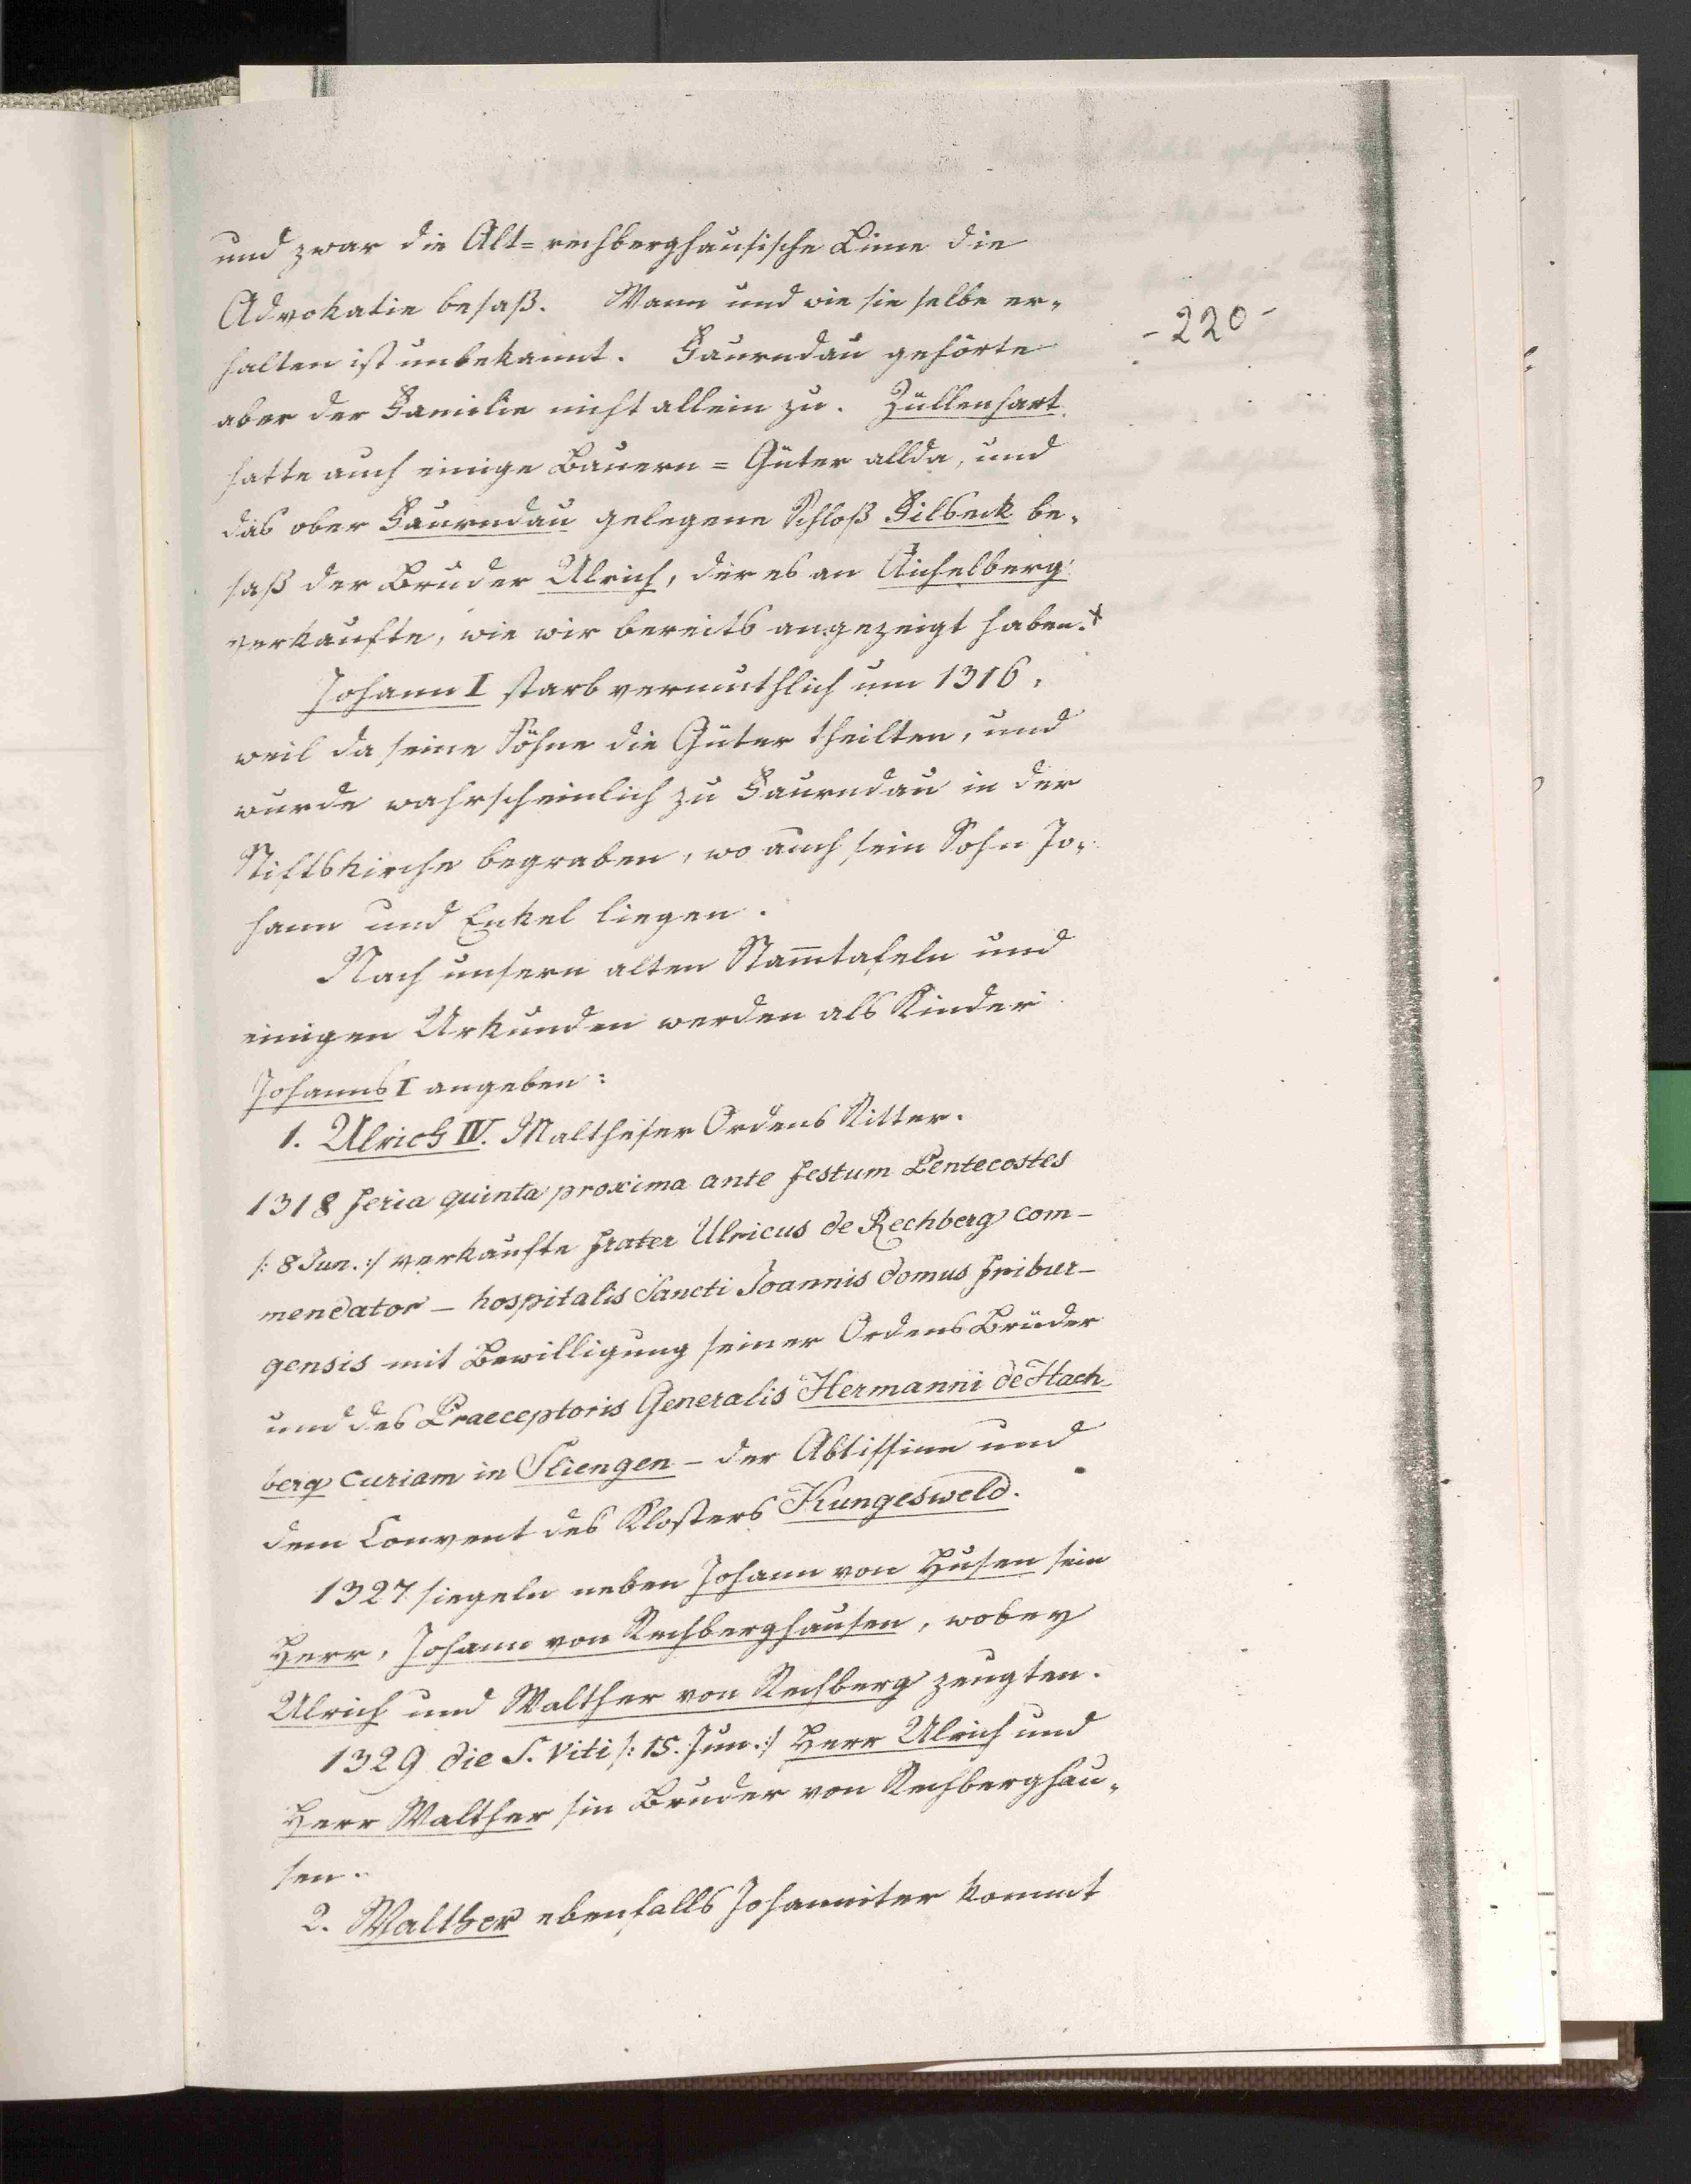 und zwar die Alt=rechberghausische Linie die
Advokatie besaß. Wann und wie sie selbe er-
- 220 -
halten ist unbekannt. Faurndau gehörte
aber der Familie nicht allein zu. Züllenhart
hatte auch einige Bauern=Güter allda, und
das ober Faurndau gelegene Schloß Filseck be-
saß der Bruder Ulrich, der es an Aichelberg
verkaufte, wie wir bereits angezeigt haben.*
Johann I starb vermuthlich um 1316,
weil da seine Söhne die Güter theilten, und
wurde wahrscheinlich zu Faurndau in der
Stiftskirche begraben, wo auch sein Sohn Jo-
hann und Enkel liegen.
Nach unsern alten Stam̅tafeln und
einigen Urkunden werden als Kinder
Johanns I angeben:
1. Ulrich IV. Maltheser Ordens Ritter.
1318 feria quinta proxima ante festum Pentecostes
/: 8 Jun. :/ verkaufte frater Ulricus de Rechberg com-
mendator - hospitalis Sancti Joannis domus fribur-
gensis mit Bewilligung seiner Ordens Brüder
und des Praeceptoris Generalis Hermanni de Hach
berg curiam in Sliengen - der Abtissinn und
dem Convent des Klosters Kungesweld.
1327 siegeln neben Johann von Husen sein
Herr, Johann von Rechberghausen, wobey
Ulrich und Walther von Rechberg zeugten.
1329 die S. Viti /: 15. Jun. :/ Herr Ulrich und
Herr Walther sin Bruder von Rechberghau-
sen.
2. Walther ebenfalls Johanniter kommt